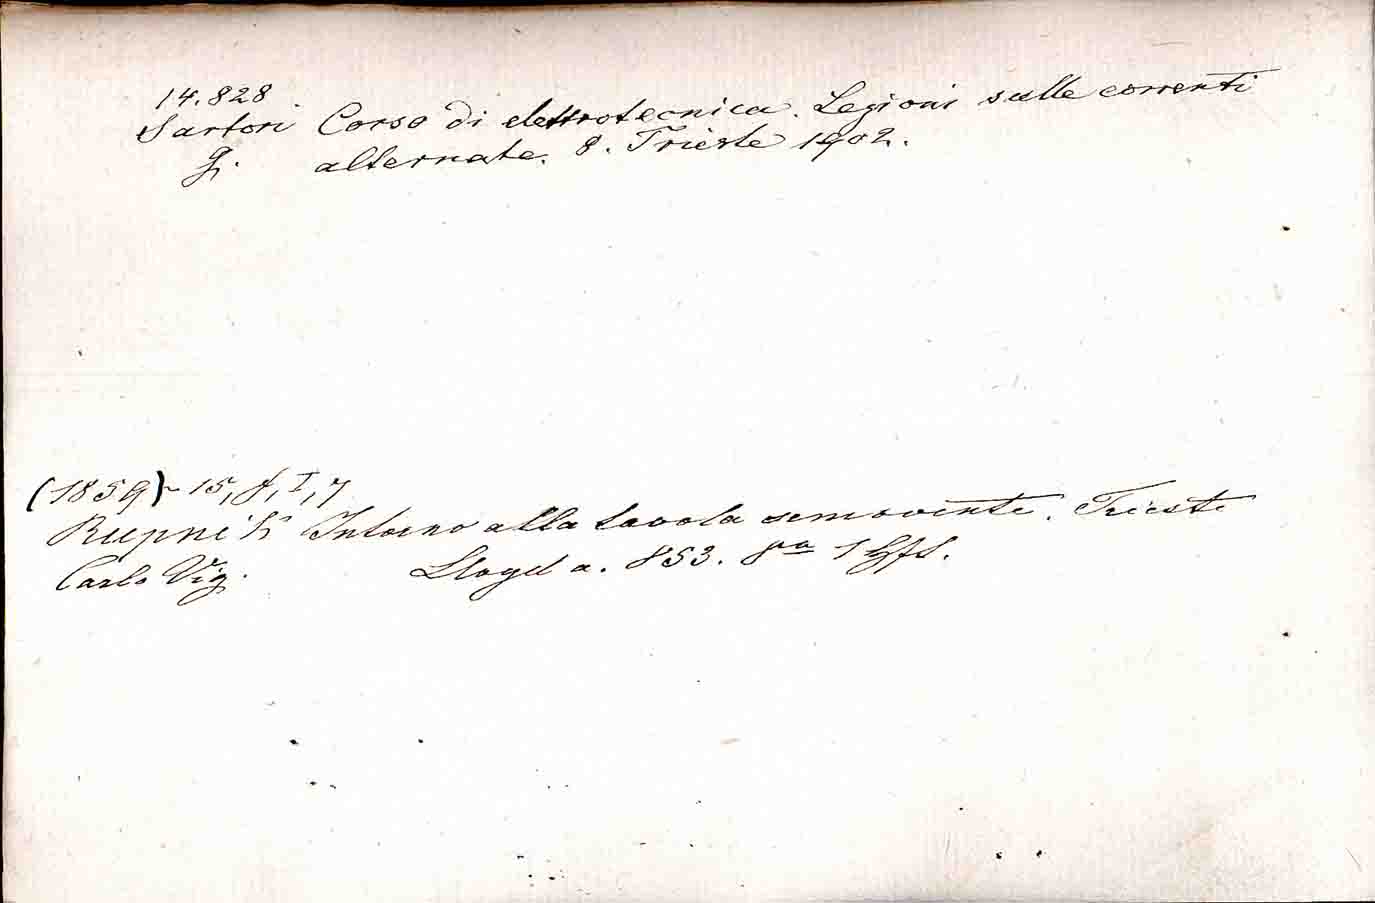 14.828
Sartori Corso di elettrotecnica. Lezioni sulle correnti
G. alternate. 8. Trieste 1902.
(1859)- 15, f, I, 7
Rupnik Intorno alla tavola semovente. Trieste
Carlo Vig. Lloyd a. 853. 8va 1 Hft.